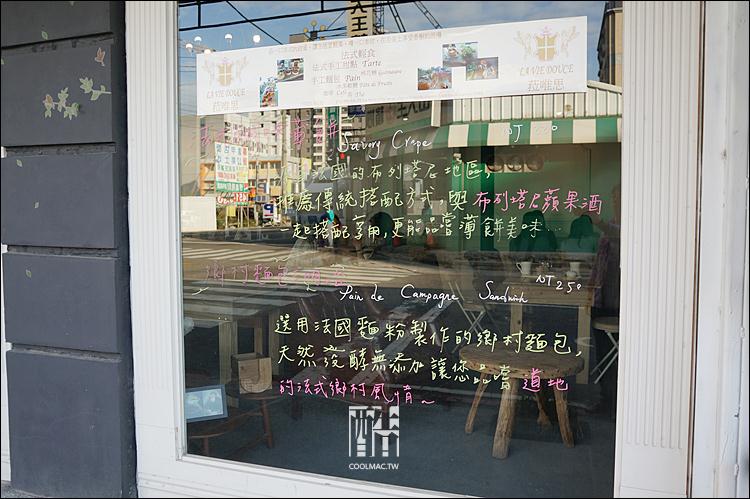 LA VIE DOUCE
菈唯思
法式輕食
法式手工甜點 Tarte
手工麵包 Pain
棉花糖 Guimauve
水果軟糖 Pâte de Fruits
咖啡 Café 茶 Thé
LA VIE DOUCE
菈唯思
Savory Crepe
法國的布列塔尼地區,
推薦傳統搭配方式,與布列塔尼蘋果酒
一起搭配享用,更能品嘗薄餅美味...
鄉村麵包
NT 250
Pain de Campagne Sandwich
選用法國麵粉製作的鄉村麵包,
天然發酵無添加讓您品嘗道地
的法式鄉村風情~
酷
COOLMAC.TW